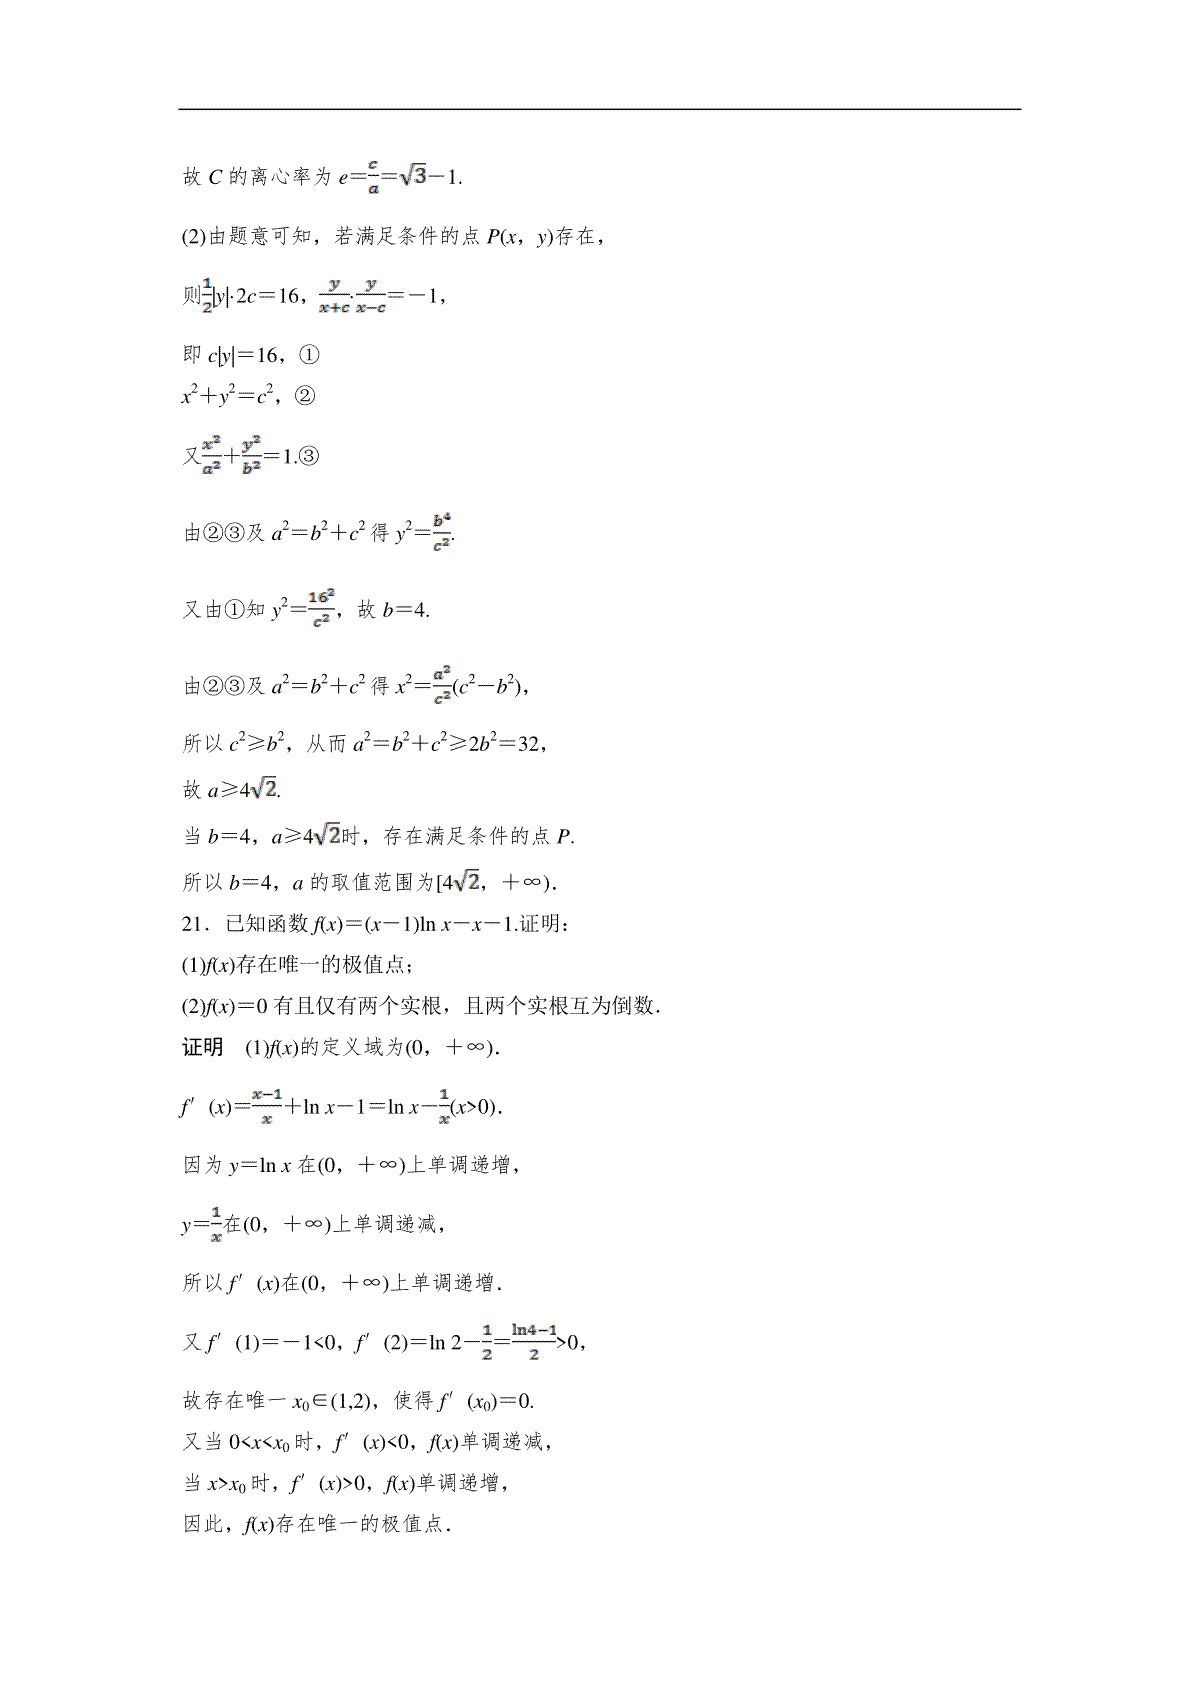 故 C 的离心率为 e＝c/a＝√3－1.
(2)由题意可知，若满足条件的点 P(x，y)存在，
则1/2|y|·2c＝16，y/(x+c)·y/(x−c)＝－1，
即 c|y|＝16，①
x²＋y²＝c²，②
又x²/a²＋y²/b²＝1.③
由②③及 a²＝b²＋c² 得 y²＝b⁴/c².
又由①知 y²＝16²/c²，故 b＝4.
由②③及 a²＝b²＋c² 得 x²＝a²/c²(c²－b²)，
所以 c²≥b²，从而 a²＝b²＋c²≥2b²＝32，
故 a≥4√2.
当 b＝4，a≥4√2时，存在满足条件的点 P.
所以 b＝4，a 的取值范围为[4√2，＋∞)．
21．已知函数 f(x)＝(x－1)ln x－x－1.证明：
(1)f(x)存在唯一的极值点；
(2)f(x)＝0 有且仅有两个实根，且两个实根互为倒数．
证明　(1)f(x)的定义域为(0，＋∞)．
f′(x)＝(x−1)/x＋ln x－1＝ln x－1/x(x>0)．
因为 y＝ln x 在(0，＋∞)上单调递增，
y＝1/x在(0，＋∞)上单调递减，
所以 f′(x)在(0，＋∞)上单调递增．
又 f′(1)＝－1<0，f′(2)＝ln 2－1/2＝(ln4−1)/2>0，
故存在唯一 x₀∈(1,2)，使得 f′(x₀)＝0.
又当 0<x<x₀ 时，f′(x)<0，f(x)单调递减，
当 x>x₀ 时，f′(x)>0，f(x)单调递增，
因此，f(x)存在唯一的极值点．